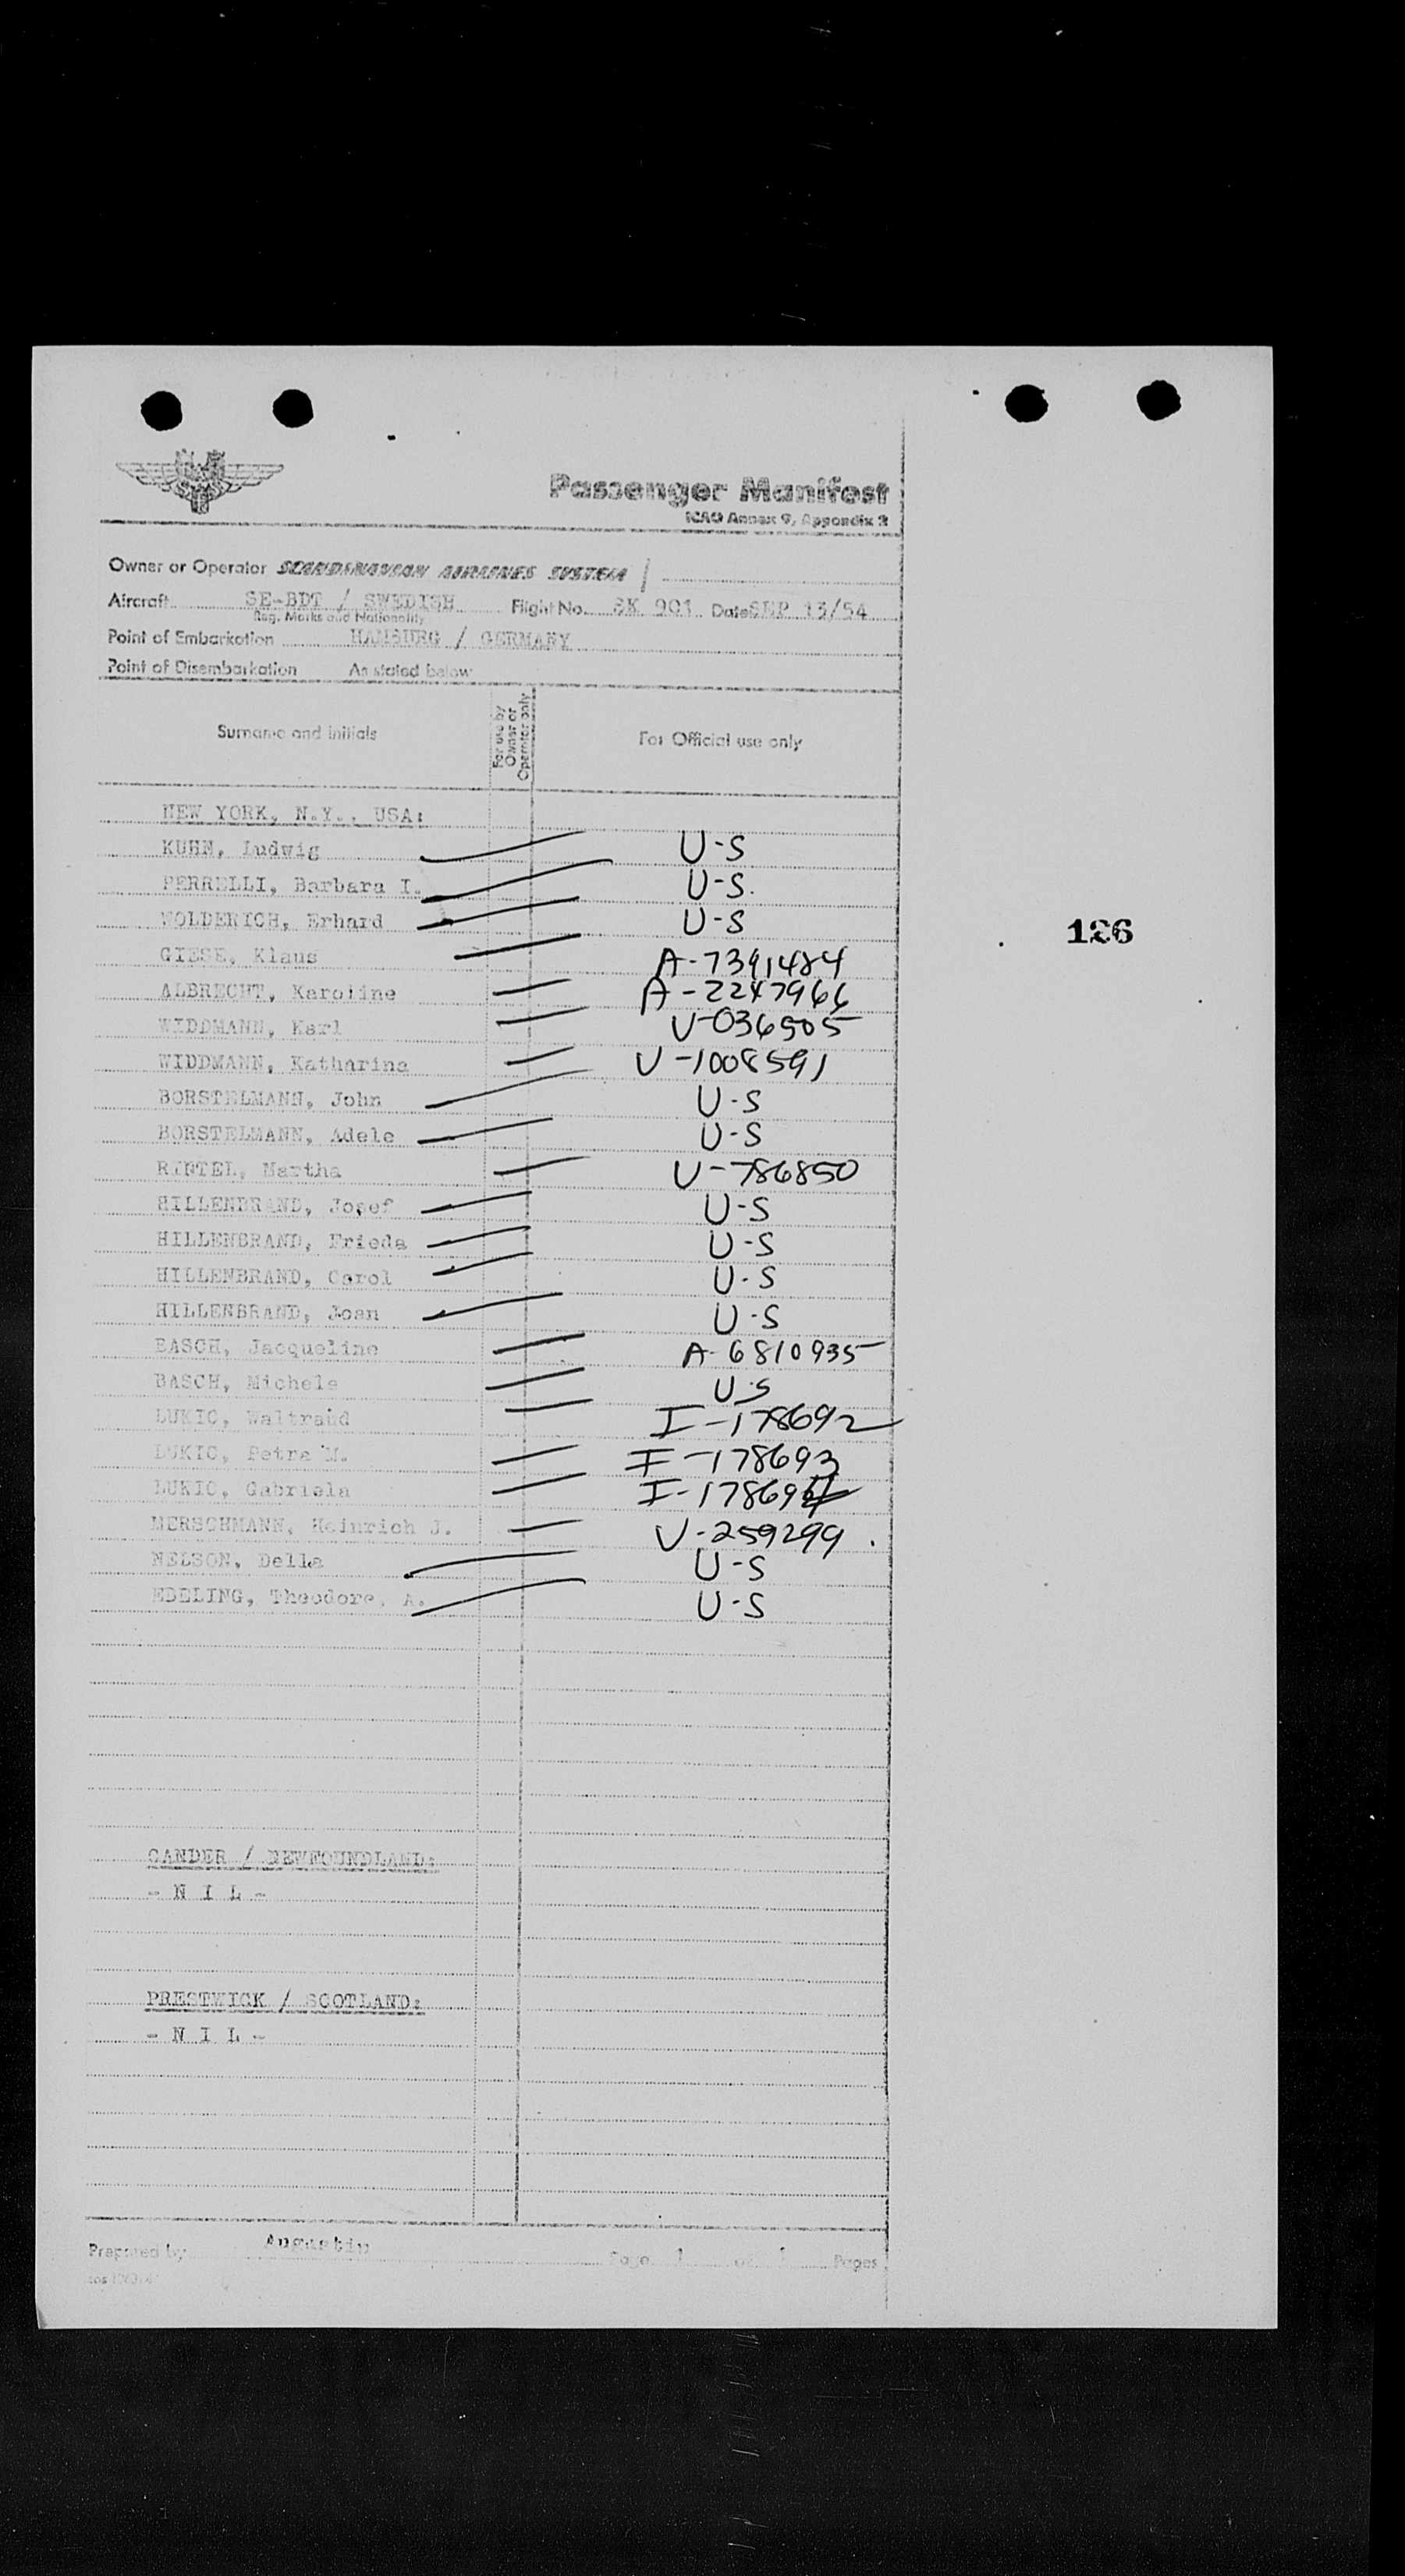 Passenger Manifest
ICAO Annex 9, Appendix 2
Owner or Operator SCANDINAVIAN AIRLINES SYSTEM
Aircraft SE-BDT / SWEDISH Flight No. SK 901 Date SEP 13/54
Reg. Marks and Nationality
Point of Embarkation HAMBURG / GERMANY
Point of Disembarkation As stated below
Surname and initials For use by Owner or Operator only For Official use only
NEW YORK, N.Y., USA:
KUHN, Ludwig U-S
PERRELLI, Barbara I. U-S.
WOLDERICH, Erhard U-S
GIESE, Klaus A-7391484
ALBRECHT, Karoline A-2247966
WIDDMANN, Karl V-036505
WIDDMANN, Katharina V-1008591
BORSTELMANN, John U-S
BORSTELMANN, Adele U-S
RINTEL, Martha V-786850
HILLENBRAND, Josef U-S
HILLENBRAND, Frieda U-S
HILLENBRAND, Carol U-S
HILLENBRAND, Joan U-S
BASCH, Jacqueline A-6810935
BASCH, Michele U-S
LUKIC, Waltraud I-178692
LUKIC, Petra M. I-178693
LUKIC, Gabriela I-178694
MERSCHMANN, Heinrich J. V-259299
NELSON, Della U-S
EBELING, Theodore, A. U-S
GANDER / NEWFOUNDLAND:
- N I L -
PRESTWICK / SCOTLAND:
- N I L -
Prepared by Augustin Page 1 of 1 Pages
126